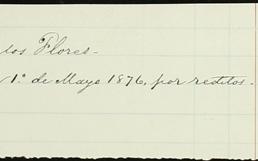 los Flores.
1º de Mayo 1876, por reditos.